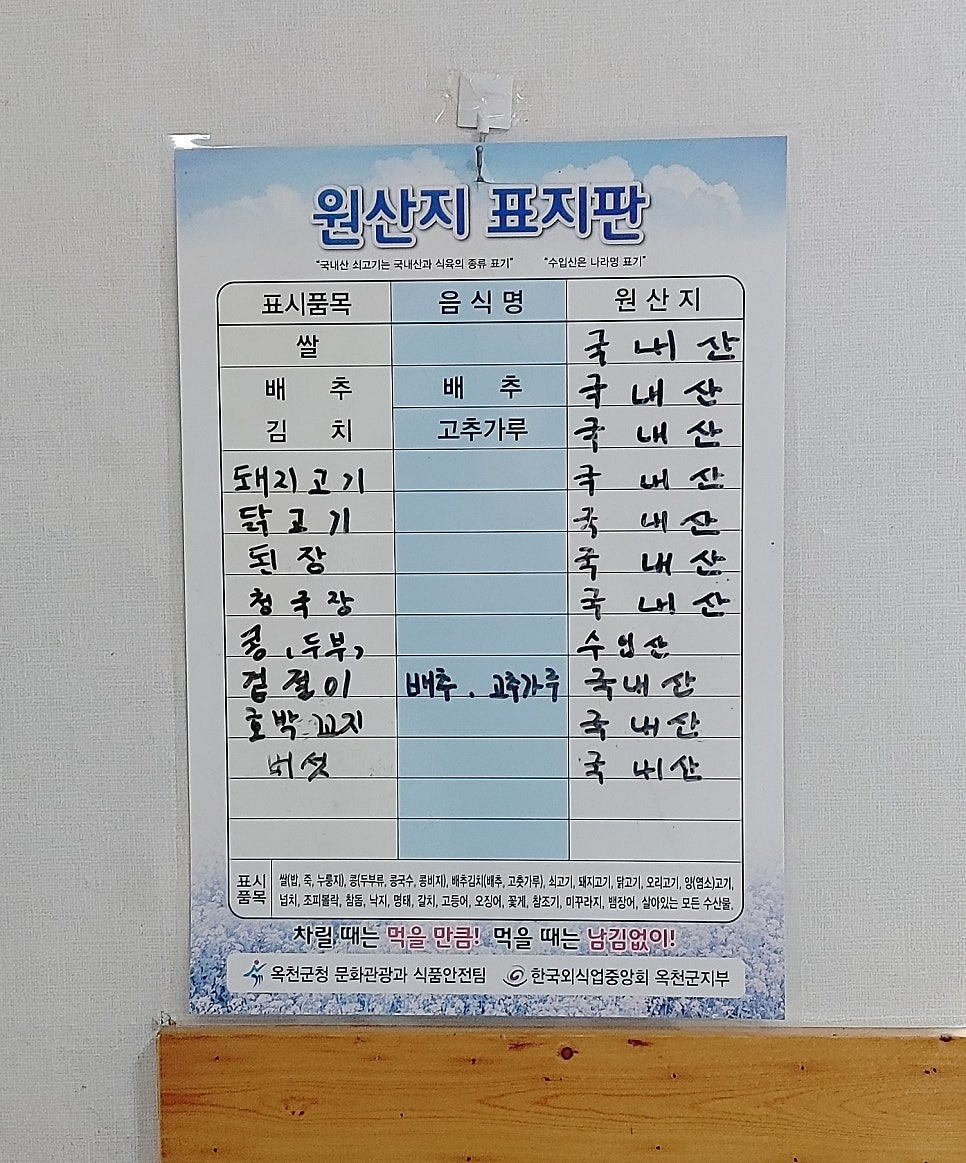 원산지 표지판
"국내산 쇠고기는 국내산과 식육의 종류 표기" "수입산은 나라명 표기"
표시품목 음식명 원산지
쌀 국내산
배추 배추 국내산
김치 고추가루 국내산
돼지고기 국내산
닭고기 국내산
된장 국내산
청국장 국내산
콩,두부, 수입산
겉절이 배추, 고추가루 국내산
호박꼬지 국내산
버섯 국내산
표시 쌀(밥, 죽, 누룽지), 콩(두부류, 콩국수, 콩비지), 배추김치(배추, 고춧가루), 쇠고기, 돼지고기, 닭고기, 오리고기, 양(염소)고기,
품목 넙치, 조피볼락, 참돔, 낙지, 명태, 갈치, 고등어, 오징어, 꽃게, 참조기, 미꾸라지, 뱀장어, 살아있는 모든 수산물,
차릴 때는 먹을 만큼! 먹을 때는 남김없이!
옥천군청 문화관광과 식품안전팀 한국외식업중앙회 옥천군지부